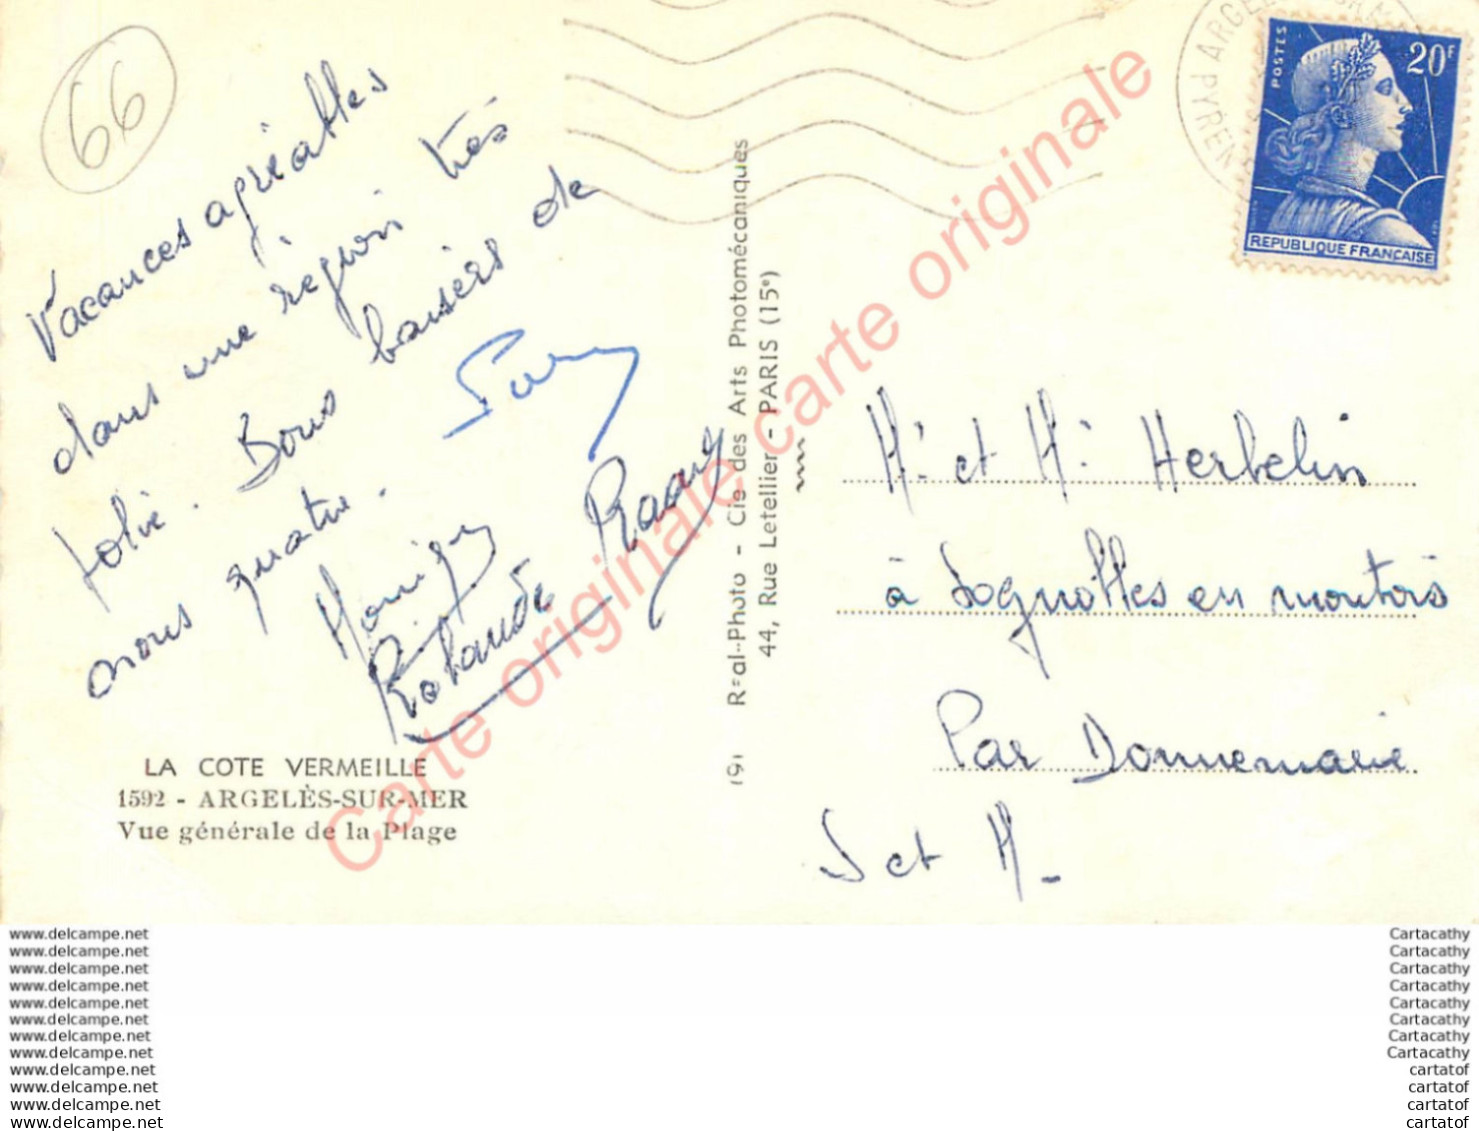 66
Vacances agréables
dans une région très
jolie. Bons baisers de
nous quatre.
Monique
Rolande
LA COTE VERMEILLE
1592 - ARGELÈS-SUR-MER
Vue générale de la Plage
Réal-Photo - Cie des Arts Photomécaniques
44, Rue Letellier - PARIS (15e)
Carte originale carte originale carte originale
POSTES
20F
REPUBLIQUE FRANCAISE
Mr et Me Herbelin
à Sognolles en montois
Par Donnemarie
S et M-
www.delcampe.net
www.delcampe.net
www.delcampe.net
www.delcampe.net
www.delcampe.net
www.delcampe.net
www.delcampe.net
www.delcampe.net
www.delcampe.net
www.delcampe.net
www.delcampe.net
www.delcampe.net
Cartacathy
Cartacathy
Cartacathy
Cartacathy
Cartacathy
Cartacathy
Cartacathy
Cartacathy
cartatof
cartatof
cartatof
cartatof